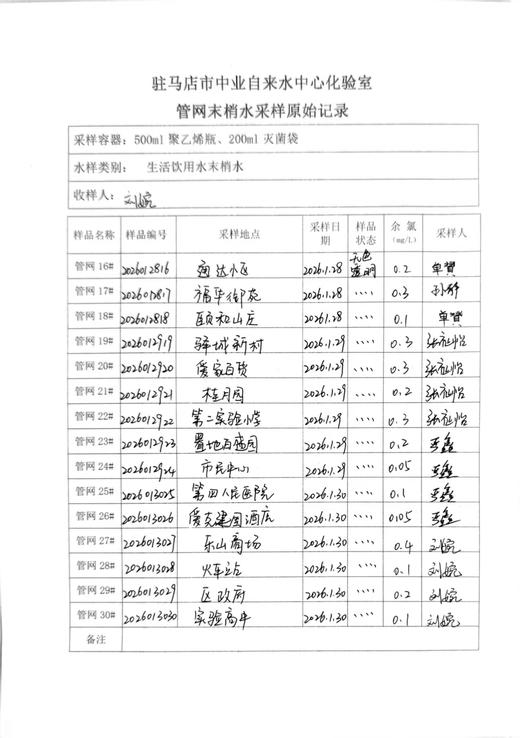 驻马店市中业自来水中心化验室
管网末梢水采样原始记录
采样容器：500ml 聚乙烯瓶、200ml 灭菌袋
水样类别： 生活饮用水末梢水
收样人： 刘婉
样品名称 样品编号 采样地点 采样日期 样品状态 余氯(mg/L) 采样人
管网 16# 2026012816 通达小区 2026.1.28 无色透明 0.2 单赞
管网 17# 2026012817 福华御苑 2026.1.28 〃〃 0.3
管网 18# 2026012818 颐和山庄 2026.1.28 〃〃 0.1 单赞
管网 19# 2026012919 驿城新村 2026.1.29 〃〃 0.3 张祉怡
管网 20# 2026012920 爱家百货 2026.1.29 〃〃 0.3 张祉怡
管网 21# 2026012921 桂月园 2026.1.29 〃〃 0.2 张祉怡
管网 22# 2026012922 第二实验小学 2026.1.29 〃〃 0.3 张祉怡
管网 23# 2026012923 置地百盛园 2026.1.29 〃〃 0.2
管网 24# 2026012924 市民中心 2026.1.29 〃〃 0.05
管网 25# 2026013025 第四人民医院 2026.1.30 〃〃 0.1
管网 26# 2026013026 爱克建国酒店 2026.1.30 〃〃 0.05
管网 27# 2026013027 乐山商场 2026.1.30 〃〃 0.4 刘婉
管网 28# 2026013028 火车站 2026.1.30 〃〃 0.1 刘婉
管网 29# 2026013029 区政府 2026.1.30 〃〃 0.2 刘婉
管网 30# 2026013030 实验高中 2026.1.30 〃〃 0.1 刘婉
备注